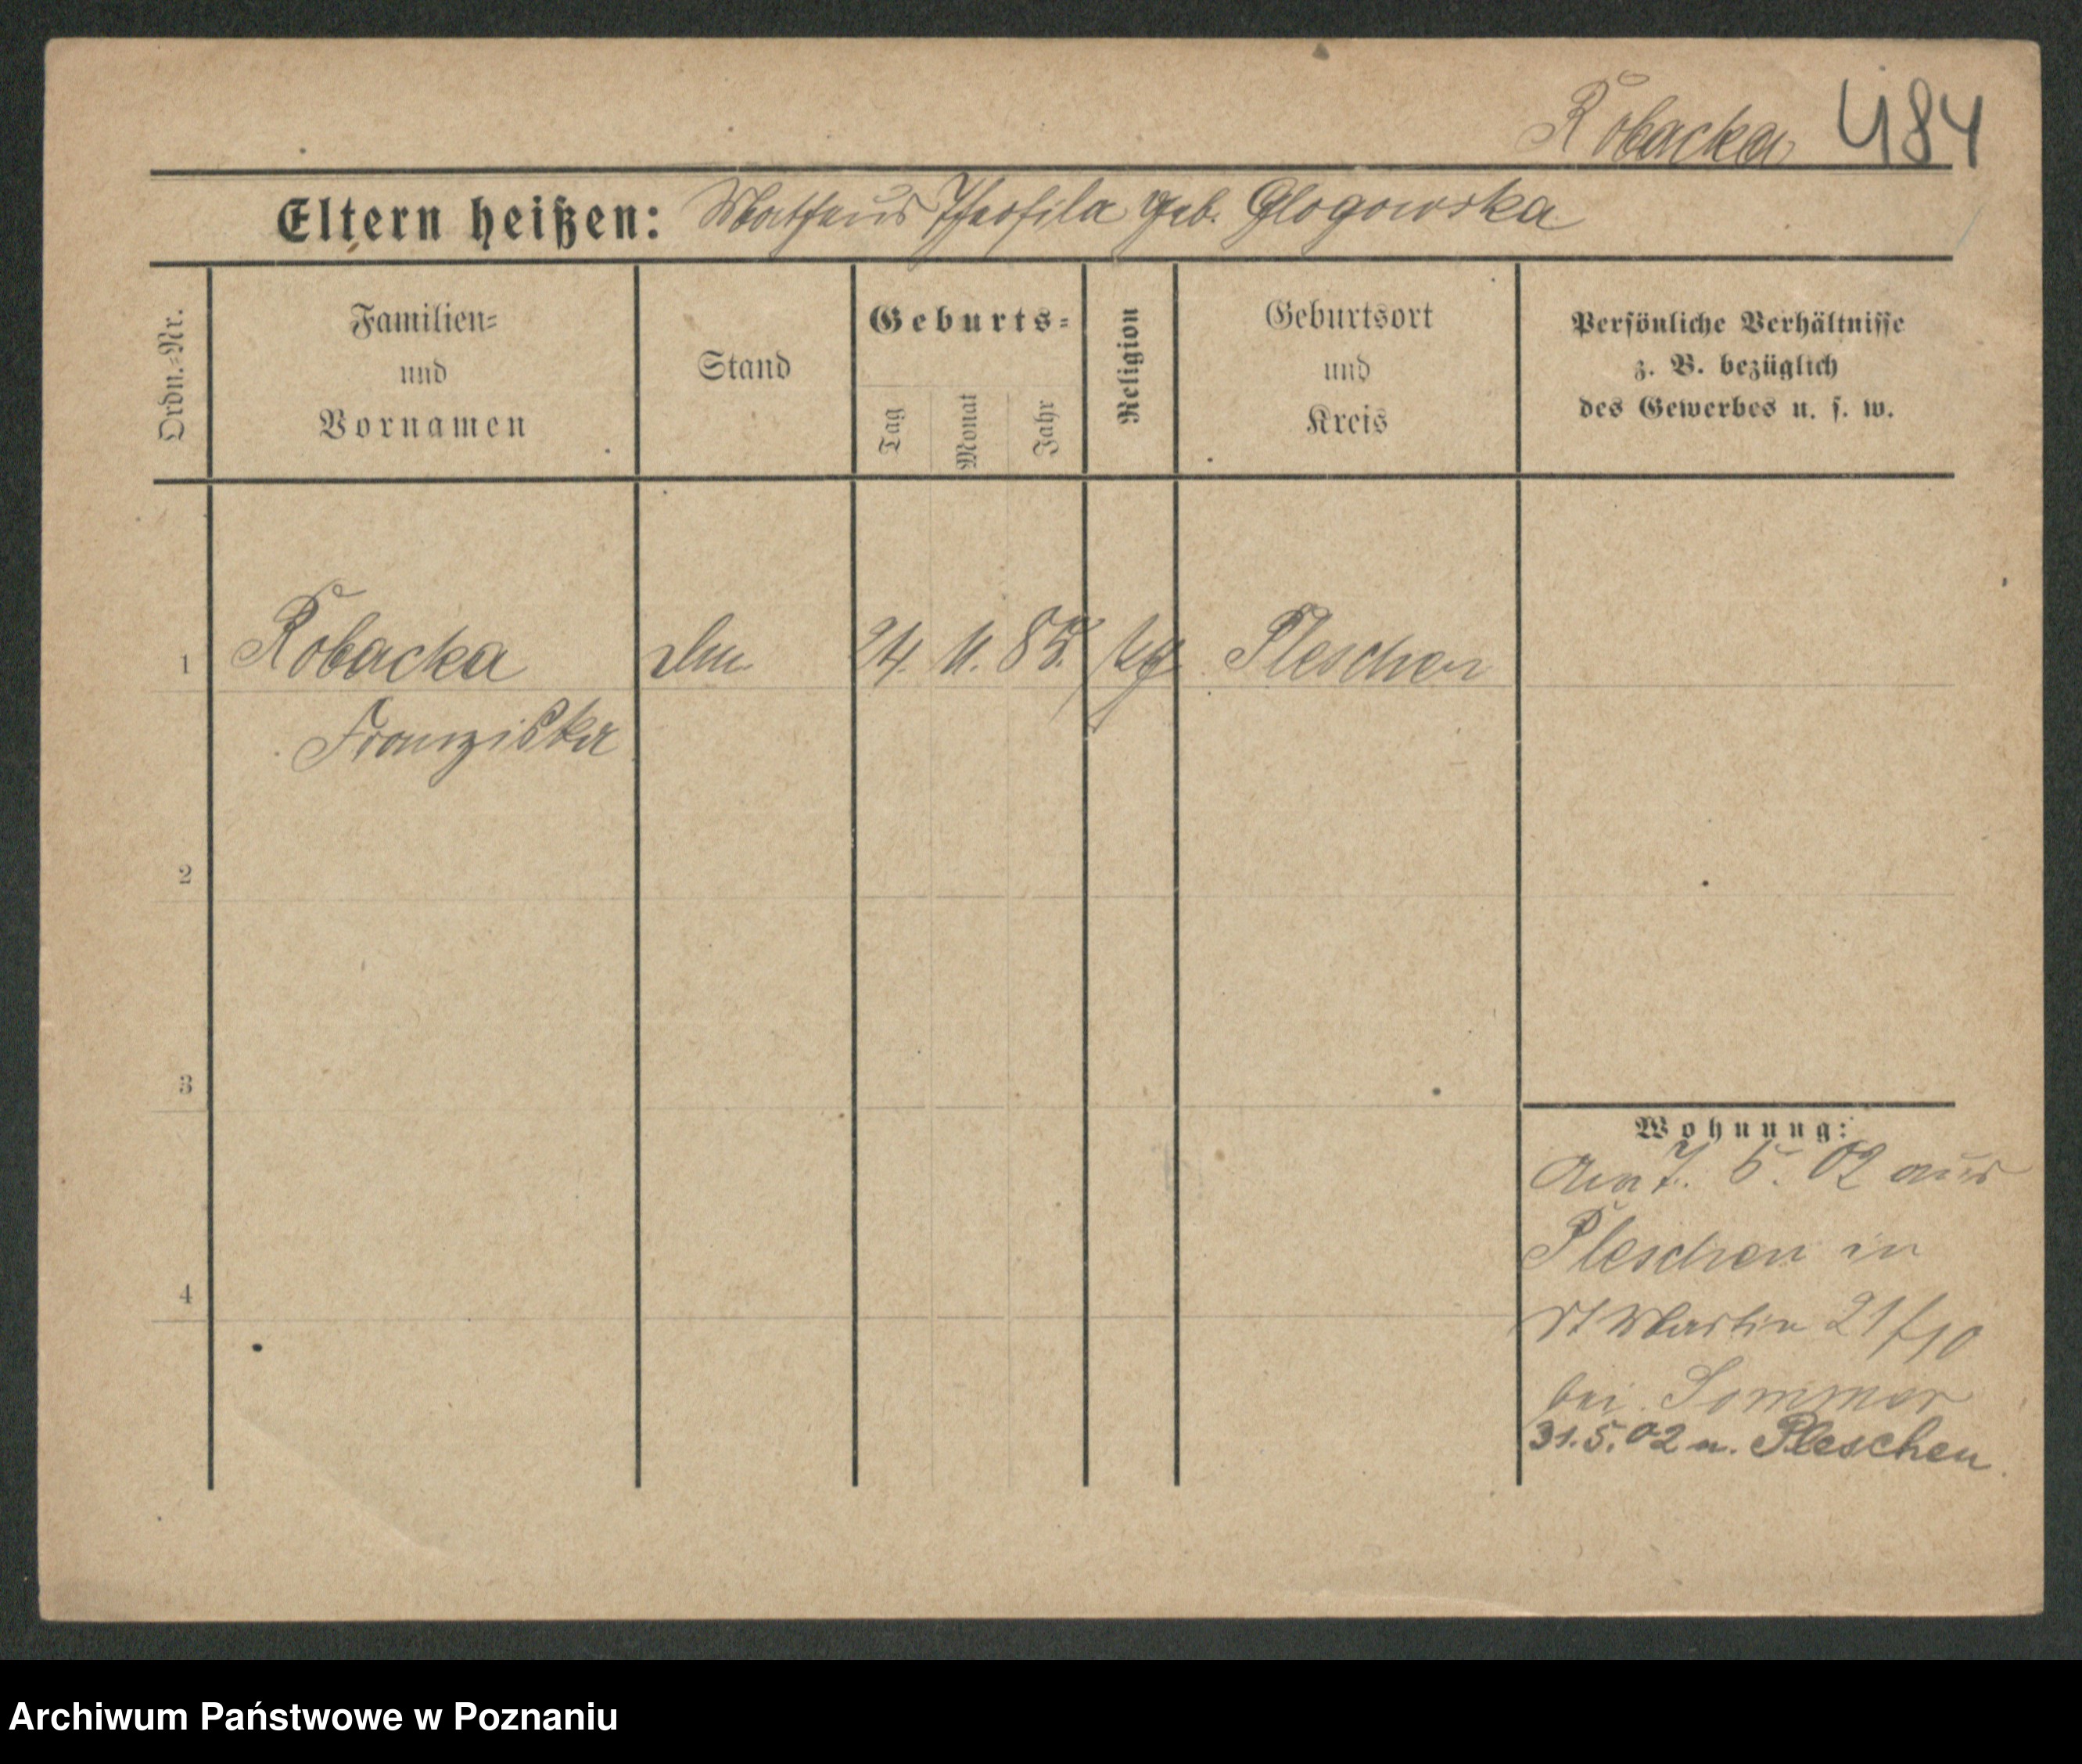 Robacka 484
Eltern heißen: Matheus Theofila geb. Glogowska
Ordn.=Nr.
Familien=
und
Vornamen
Stand
Geburts=
Tag
Monat
Jahr
Religion
Geburtsort
und
Kreis
Persönliche Verhältnisse
z. B. bezüglich
des Gewerbes u. s. w.
1 Robacka 24. 11. 85. Pleschen
Franziska
2
3
4
Wohnung:
7. 5. 02 aus
Pleschen in
St Martin 21/10
bei Sommer
31.5.02 n. Pleschen
Archiwum Państwowe w Poznaniu